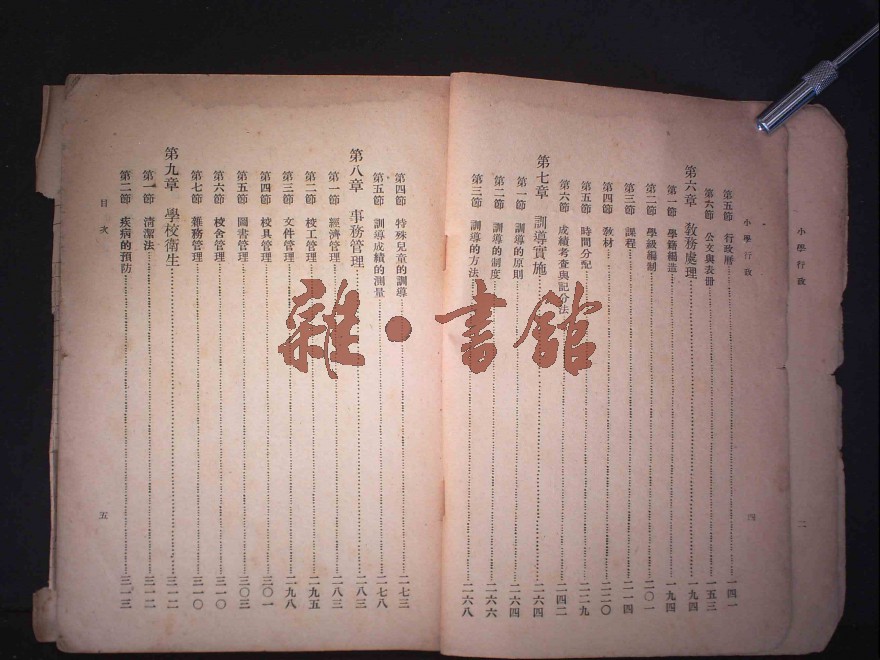 小學行政
二
小學行政
四
第五節 行政曆 一四一
第六節 公文與表冊 一五三
第六章 教務處理 一九四
第一節 學籍編造 一九四
第二節 學級編制 二〇一
第三節 課程 二一四
第四節 教材 二二〇
第五節 時間分配 二二九
第六節 成績考查與記分法 二四二
第七章 訓導實施 二六四
第一節 訓導的原則 二六四
第二節 訓導的制度 二六六
第三節 訓導的方法 二六八
第四節 特殊兒童的訓導 二七三
第五節 訓導成績的測量 二七八
第八章 事務管理 二八三
第一節 經濟管理 二八三
第二節 校工管理 二九五
第三節 文件管理 二九八
第四節 校具管理 三〇一
第五節 圖書管理 三〇三
第六節 校舍管理 三一〇
第七節 雜務管理 三一〇
第九章 學校衛生 三一二
第一節 清潔法 三一二
第二節 疾病的預防 三一三
目次
五
雜·書館